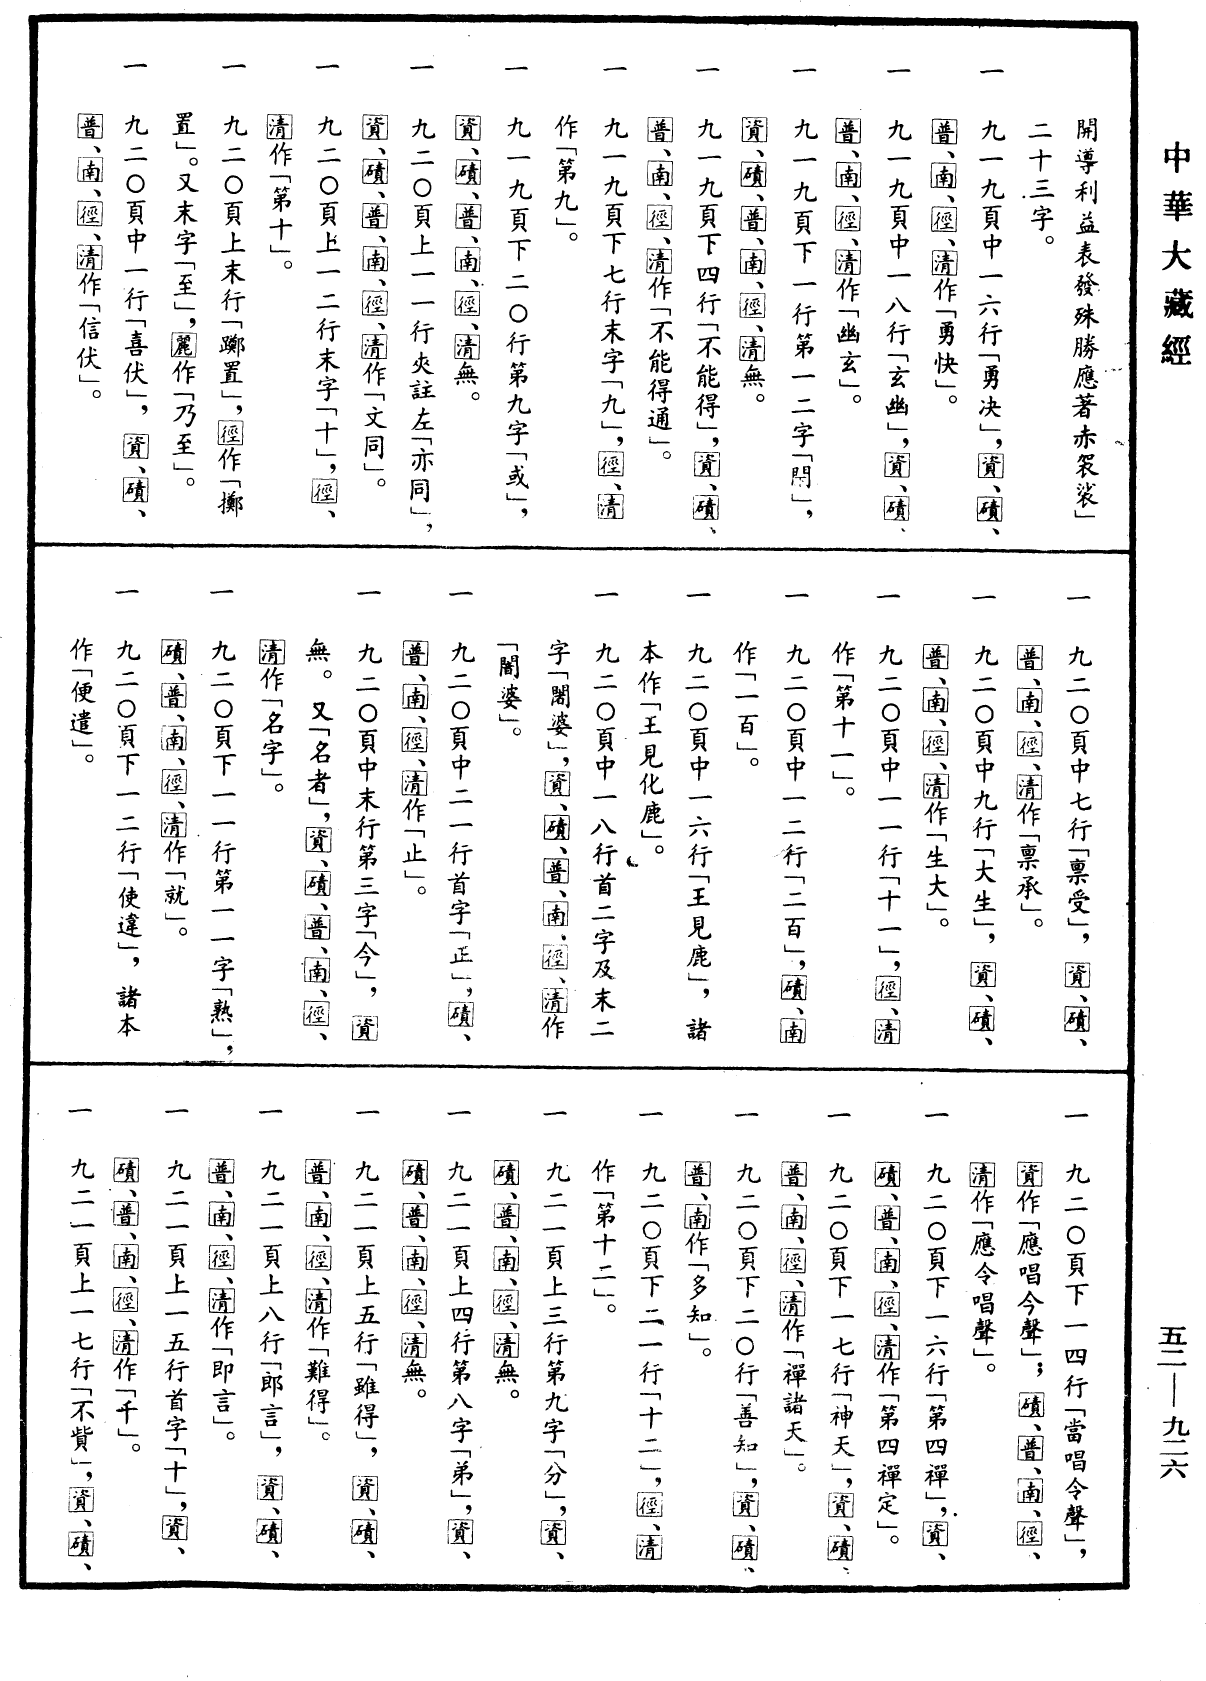 中華大藏經
開導利益表發殊勝應著赤袈裟」
二十三字。
一　九一九頁中一六行「勇决」，資、磧、
普、南、徑、清作「勇快」。
一　九一九頁中一八行「玄幽」，資、磧、
普、南、徑、清作「幽玄」。
一　九一九頁下一行第一二字「門」，
資、磧、普、南、徑、清無。
一　九一九頁下四行「不能得」，資、磧、
普、南、徑、清作「不能得通」。
一　九一九頁下七行末字「九」，徑、清
作「第九」。
一　九一九頁下二〇行第九字「或」，
資、磧、普、南、徑、清無。
一　九二〇頁上一一行夾註左「亦同」，
資、磧、普、南、徑、清作「文同」。
一　九二〇頁上一二行末字「十」，徑、
清作「第十」。
一　九二〇頁上末行「躑置」，徑作「擲
置」。又末字「至」，麗作「乃至」。
一　九二〇頁中一行「喜伏」，資、磧、
普、南、徑、清作「信伏」。
一　九二〇頁中七行「禀受」，資、磧、
普、南、徑、清作「禀承」。
一　九二〇頁中九行「大生」，資、磧、
普、南、徑、清作「生大」。
一　九二〇頁中一一行「十一」，徑、清
作「第十一」。
一　九二〇頁中一二行「二百」，磧、南
作「一百」。
一　九二〇頁中一六行「王見鹿」，諸
本作「王見化鹿」。
一　九二〇頁中一八行首二字及末二
字「闍婆」，資、磧、普、南、徑、清作
「闇婆」。
一　九二〇頁中二一行首字「正」，磧、
普、南、徑、清作「止」。
一　九二〇頁中末行第三字「今」，資
無。又「名者」，資、磧、普、南、徑、
清作「名字」。
一　九二〇頁下一一行第一一字「熟」，
磧、普、南、徑、清作「就」。
一　九二〇頁下一二行「使違」，諸本
作「便遣」。
一　九二〇頁下一四行「當唱令聲」，
資作「應唱今聲」；磧、普、南、徑、
清作「應令唱聲」。
一　九二〇頁下一六行「第四禪」，資、
磧、普、南、徑、清作「第四禪定」。
一　九二〇頁下一七行「神天」，資、磧、
普、南、徑、清作「禪諸天」。
一　九二〇頁下二〇行「善知」，資、磧、
普、南作「多知」。
一　九二〇頁下二一行「十二」，徑、清
作「第十二」。
一　九二一頁上三行第九字「分」，資、
磧、普、南、徑、清無。
一　九二一頁上四行第八字「弟」，資、
磧、普、南、徑、清無。
一　九二一頁上五行「雖得」，資、磧、
普、南、徑、清作「難得」。
一　九二一頁上八行「郎言」，資、磧、
普、南、徑、清作「即言」。
一　九二一頁上一五行首字「十」，資、
磧、普、南、徑、清作「千」。
一　九二一頁上一七行「不貲」，資、磧、
五二—九二六